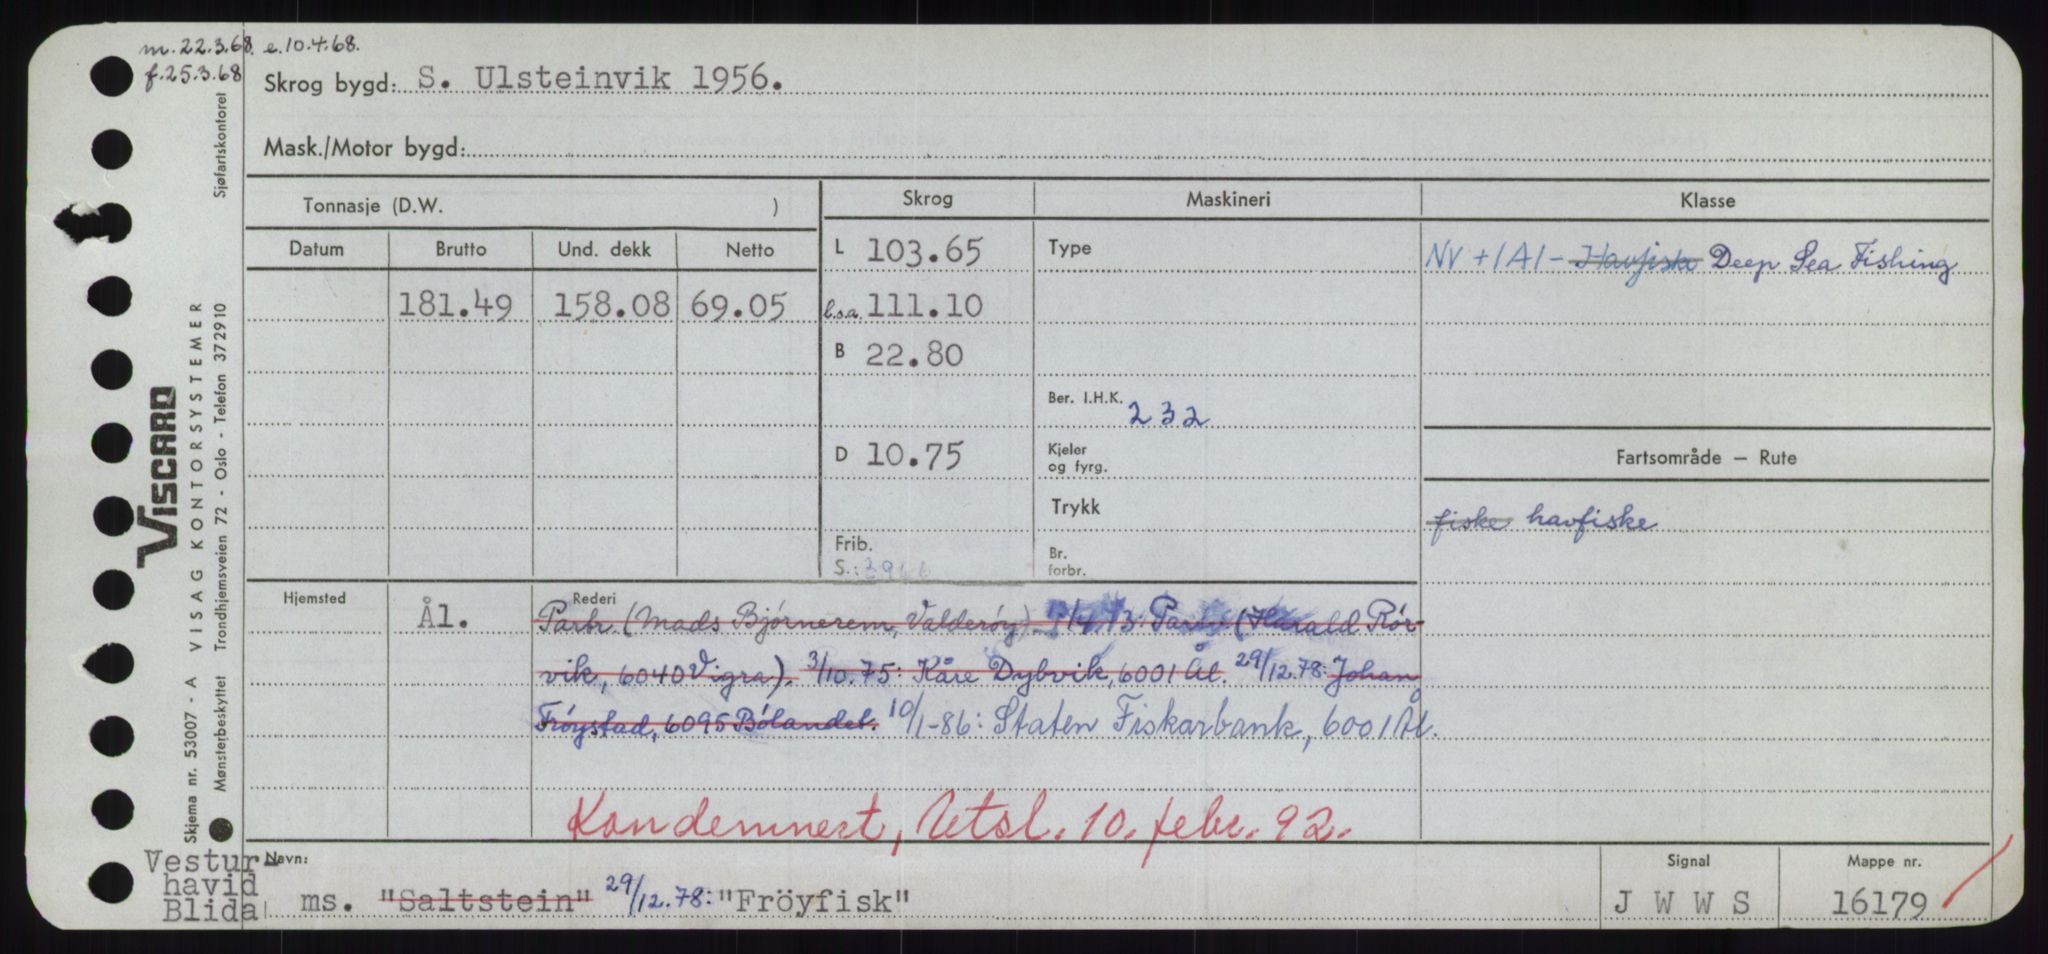 m. 22.3.68. e. 10.4.68.
f. 25.3.68
Skrog bygd: S. Ulsteinvik 1956.
Mask./Motor bygd:
Tonnasje (D.W. )
Skrog
Maskineri
Klasse
Datum Brutto Und. dekk Netto
L 103.65
Type
NV +1A1- Havfiske Deep Sea Fishing
181.49 158.08 69.05
l.o.a. 111.10
B 22.80
Ber. I.H.K. 232
D 10.75
Kjeler
og fyrg.
Fartsområde – Rute
Trykk
fiske havfiske
Frib.
S.:
Br.
forbr.
Hjemsted Ål.
Rederi
Partr. (Mads Bjørnerem, Valderøy) Partr (Harald Rör-
vik, 6040 Vigra). 3/10.75: Kåre Dybvik, 6001 Ål. 29/12.78: Johan
Fröystad, 6095 Bölandet. 10/1-86: Staten Fiskarbank, 6001 Ål.
Kondemnert, Utsl. 10. febr. 92.
Navn:
ms. "Saltstein" 29/12.78: "Fröyfisk"
Signal
J W W S
Mappe nr.
16179
Vestur-
havid
Blida
VISCARD
Skjema nr. 53007 - A VISAG KONTORSYSTEMER
Mønsterbeskyttet Trondhjemsveien 72 - Oslo - Telefon 372910 Sjøfartskontoret